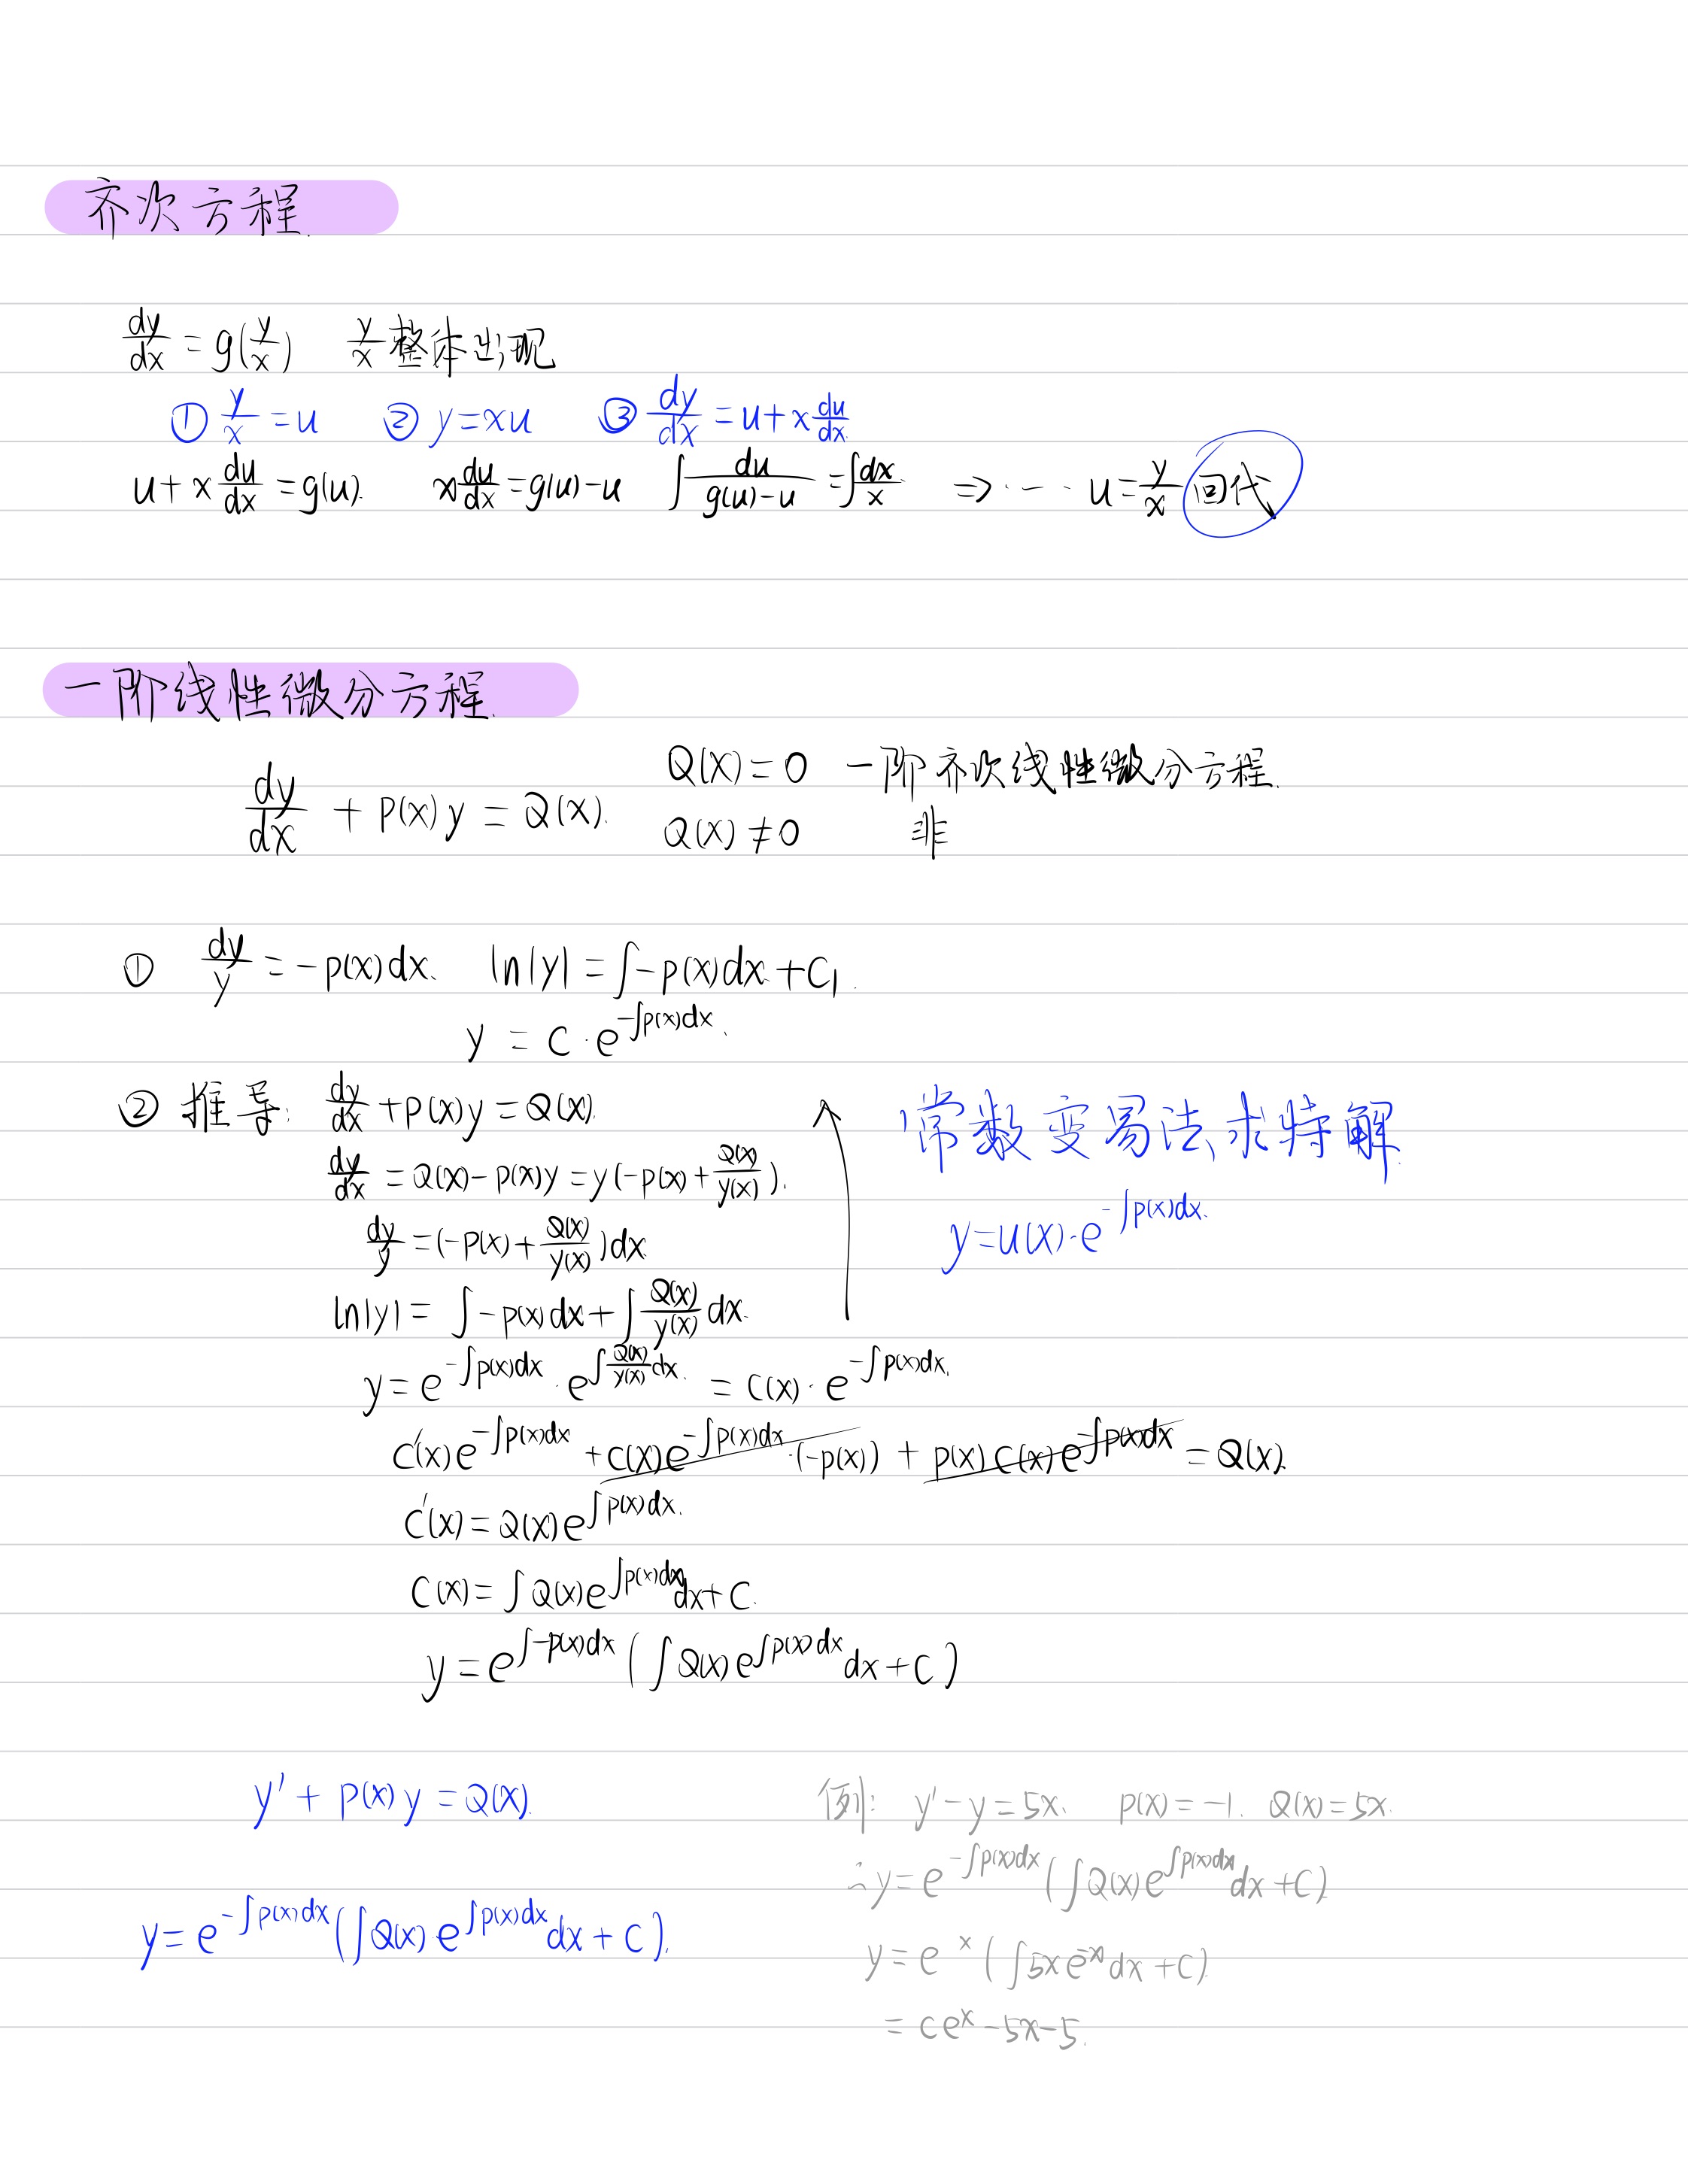 齐次方程.
dy/dx = g(y/x)  y/x 整体出现
① y/x = u  ② y = xu  ③ dy/dx = u + x du/dx
u + x du/dx = g(u).  x du/dx = g(u) - u  ∫ du/(g(u)-u) = ∫ dx/x  ⇒ ··· u = y/x 回代
一阶线性微分方程.
dy/dx + P(x)y = Q(x).  Q(x) = 0 一阶齐次线性微分方程.
Q(x) ≠ 0  非
① dy/y = -p(x)dx.  ln|y| = ∫-p(x)dx + C₁.
y = C · e^(-∫p(x)dx).
② 推导: dy/dx + P(x)y = Q(x).
常数变易法求特解
dy/dx = Q(x) - P(x)y = y(-p(x) + Q(x)/y(x)).
y = u(x)·e^(-∫p(x)dx).
dy/y = (-P(x) + Q(x)/y(x))dx
ln|y| = ∫-p(x)dx + ∫Q(x)/y(x) dx.
y = e^(-∫p(x)dx) · e^(∫Q(x)/y(x) dx) = C(x) · e^(-∫p(x)dx).
C'(x)e^(-∫p(x)dx) + C(x)e^(-∫p(x)dx)·(-p(x)) + p(x)C(x)e^(-∫p(x)dx) = Q(x).
C'(x) = Q(x)e^(∫p(x)dx).
C(x) = ∫Q(x)e^(∫p(x)dx)dx + C.
y = e^(∫-p(x)dx) (∫Q(x)e^(∫p(x)dx)dx + C)
y' + P(x)y = Q(x).
y = e^(-∫p(x)dx)(∫Q(x)e^(∫p(x)dx)dx + C).
例: y' - y = 5x.  p(x) = -1.  Q(x) = 5x.
∴ y = e^(-∫p(x)dx)(∫Q(x)e^(∫p(x)dx)dx + C)
y = e^x (∫5xe^(-x)dx + C).
= Ce^x - 5x - 5.